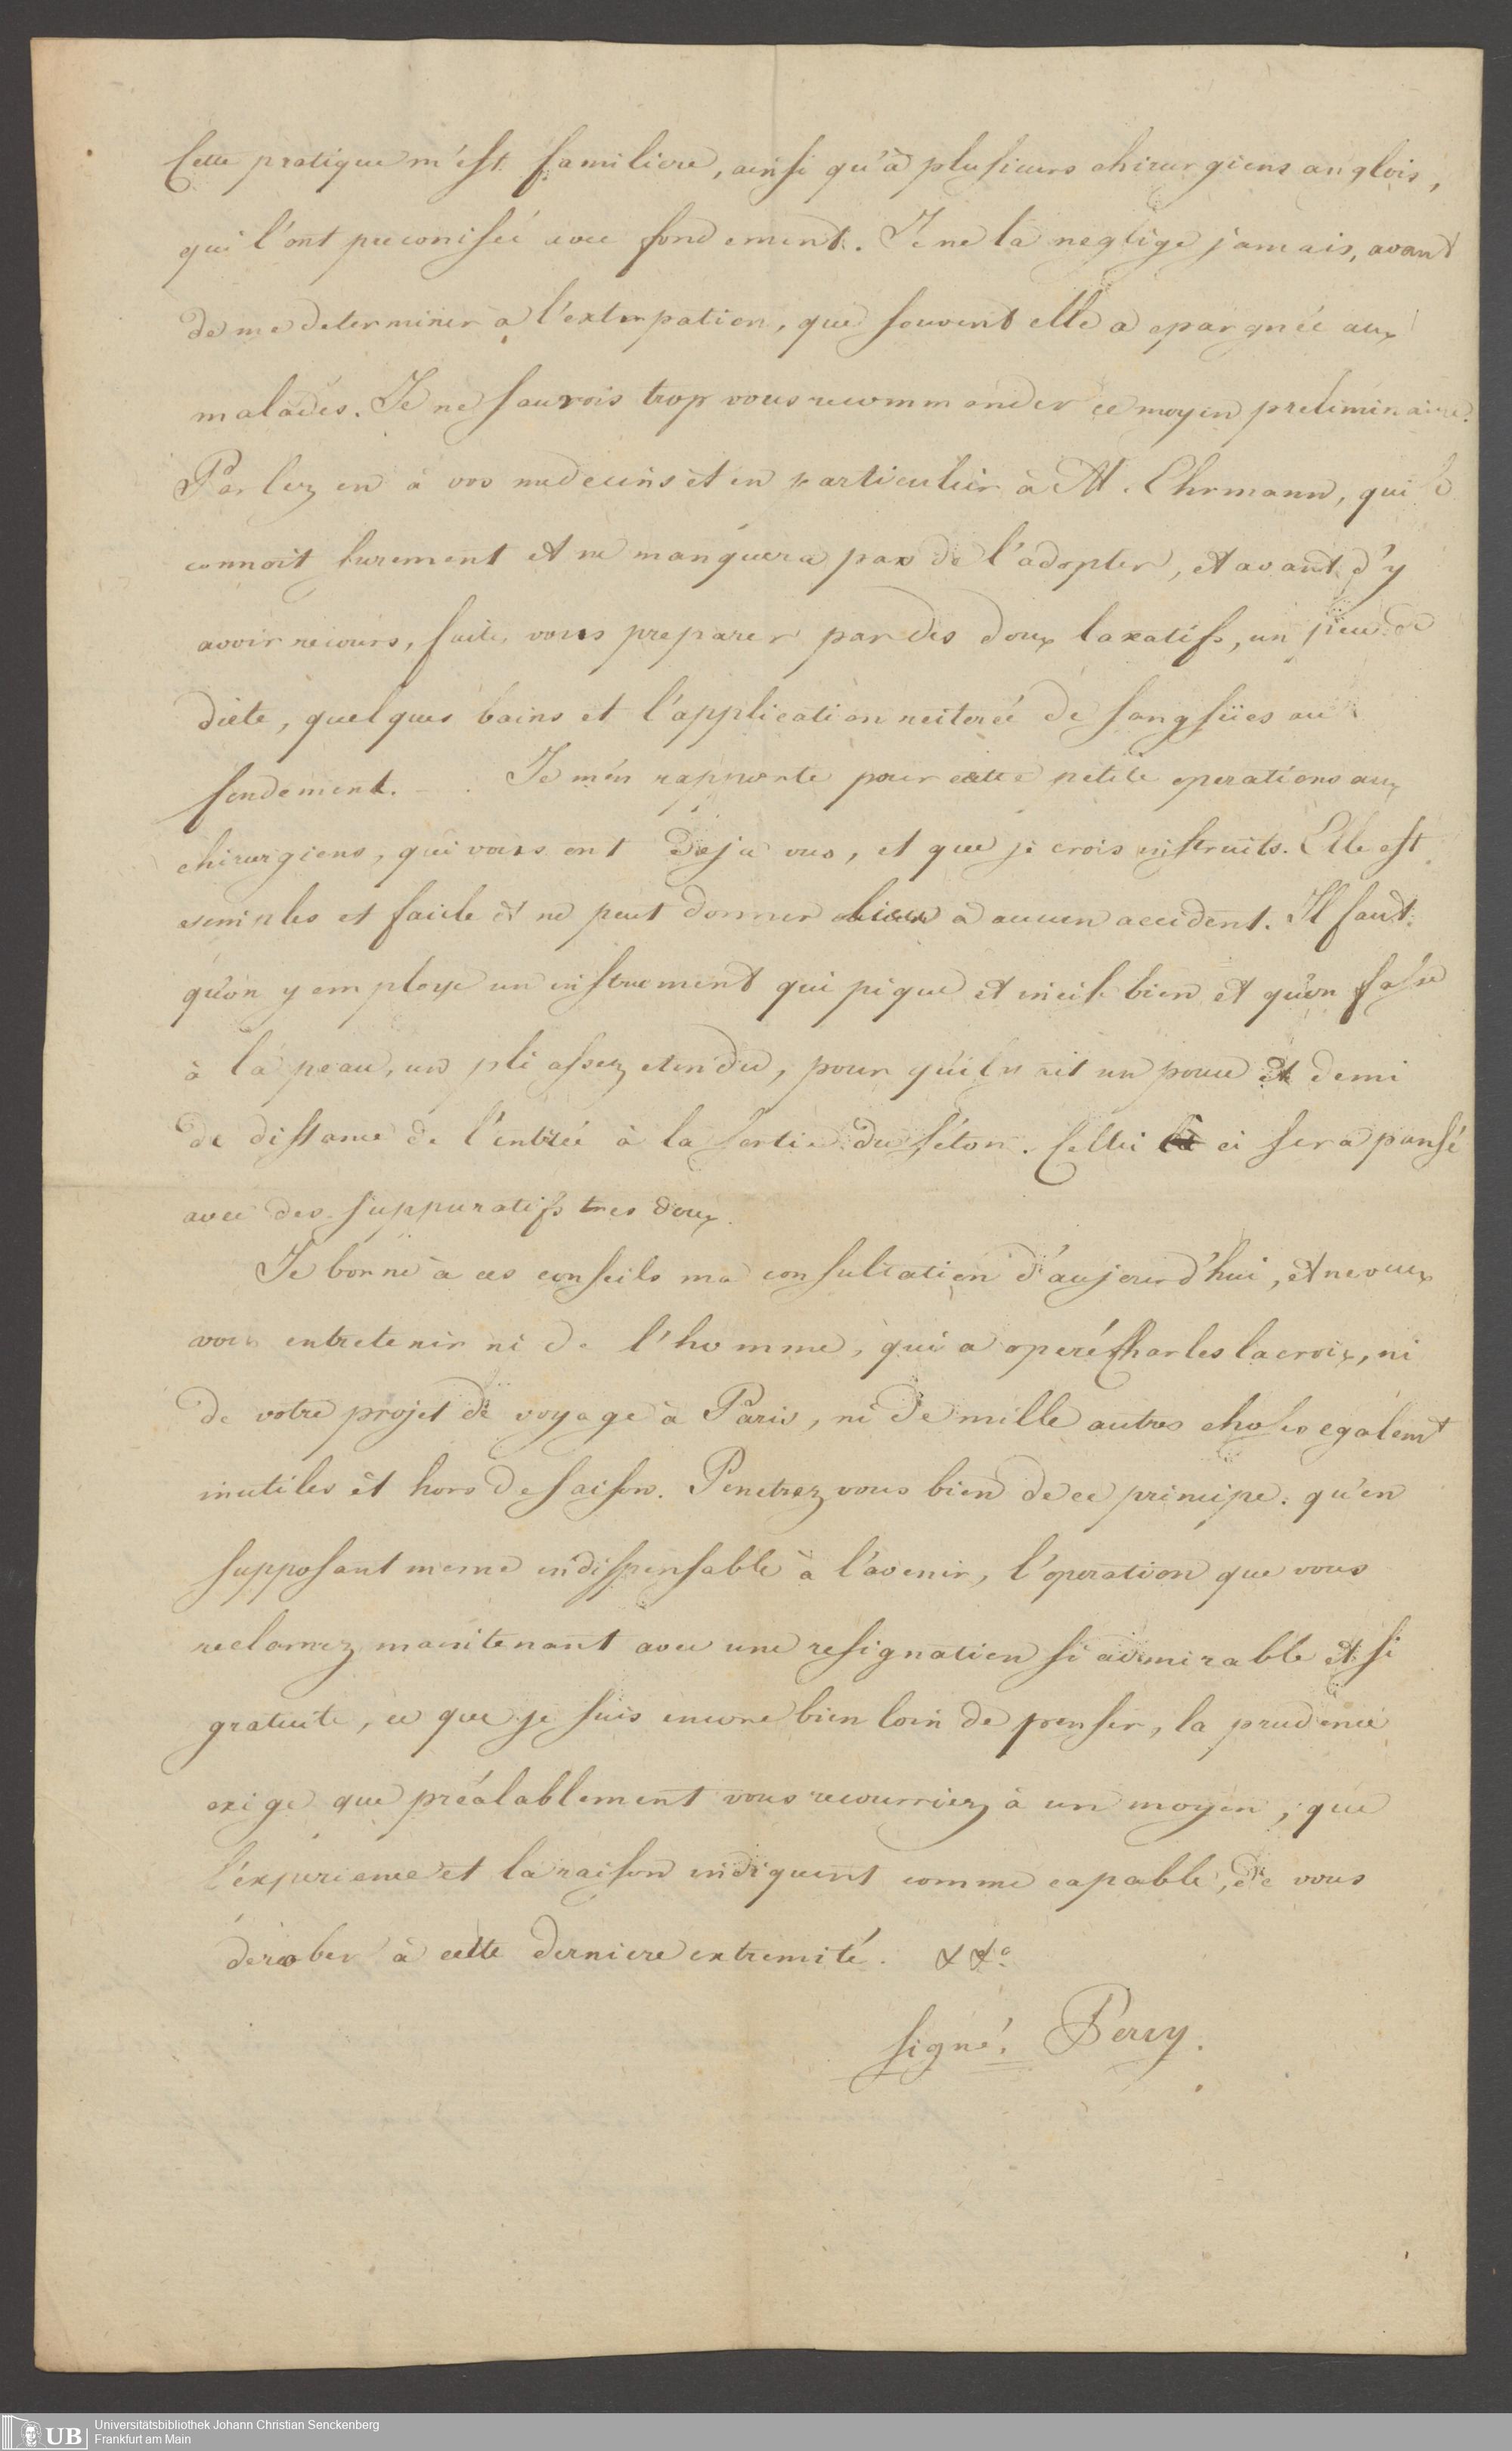 Cette pratique m'est familiere, ainsi qu'à plusieurs chirurgiens anglois,
qui l'ont preconisée avec fondement. Je ne la neglige jamais, avant
de me determiner a l'extirpation, que souvent elle a epargnée aux
malades. Je ne saurois trop vous recommander ce moyen preliminaire.
Parlez en à vos medecins et en particulier à M. Ehrmann, qui le
connoit surement et ne manquera pas de l'adopter, et avant d'y
avoir recours, faites vous preparer par des doux laxatifs, un peu de
diète, quelques bains et l'application reiterée de sangsües au
fondement. – . Je m'en rapporte pour cette petite operations aux
chirurgiens, qui vous ont deja vus, et que je crois instruits. Elle est
simples et facile et ne peut donner lieu à aucun accident. Il faut
qu'on y employe un instrument qui pique et incise bien et qu'on fasse
à la peau, un pli assez etendu, pour qu'il y ait un pouce et demi
de distance de l'entrée à la sortie du séton. Cellui ci sera pansé
avec des suppuratifs tres doux.
Je borne à ces conseils ma consultation d'aujourd'hui, et ne veux
vous entretenir ni de l'homme, qui a operé Charles lacroix, ni
de votre projet de voyage à Paris, ni de mille autres choses egalemt
inutiles et hors de saison. Penetrez vous bien de ce principe: qu'en
supposant meme indispensable à l'avenir, l'operation que vous
reclamez maintenant avec une resignation si admirable et si
gratuite, ce que je suis encore bien loin de penser, la prudence
exige que préalablement vous recourriez à un moyen, que
l'experience et la raison indiquent comme capable, de vous
derober à cette derniere extremité. &&c
signé. Percy.
Universitätsbibliothek Johann Christian Senckenberg
Frankfurt am Main
UB